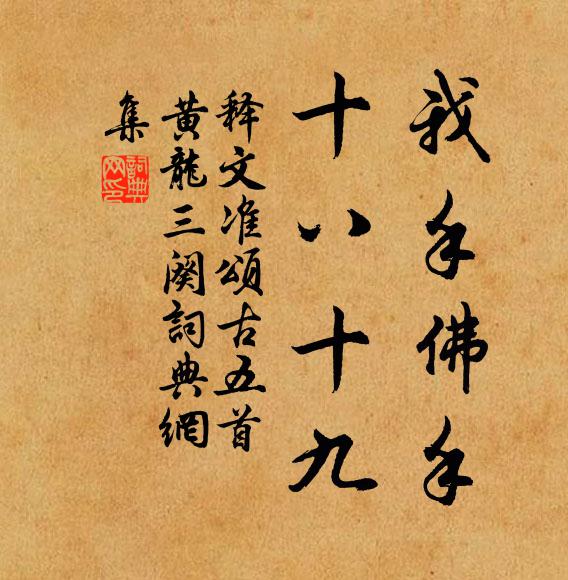 我手佛手
十八十九
释文准颂古五首
黄龙三关詞典網
集
詞典网印